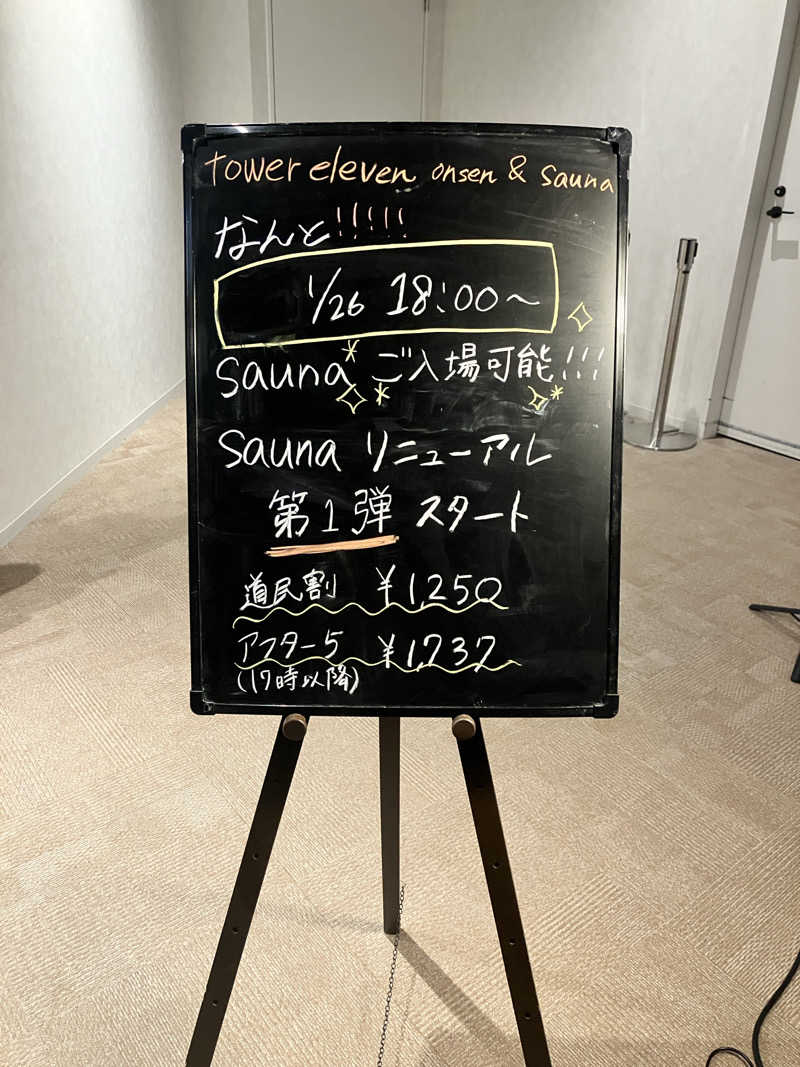 tower eleven onsen & sauna
なんと!!!!!
1/26 18:00～
sauna ご入場可能!!!
sauna リニューアル
第1弾 スタート
道民割 ¥1,250
アフター5 ¥1,737
(17時以降)